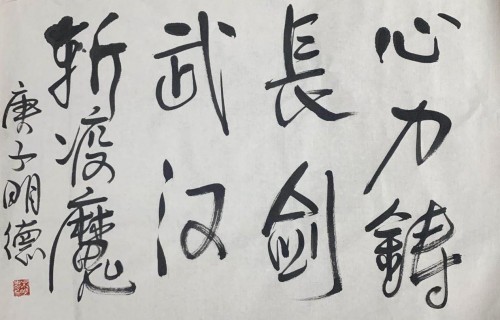 心力鑄
長劍
武汉
斬疫魔
庚子明德